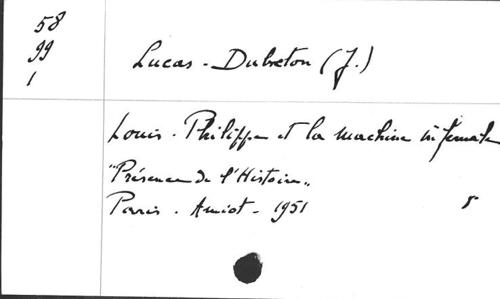 58
99
1
Lucas - Dubreton (J.)
Louis-Philippe et la machine infernale
"Présence de l'Histoire"
Paris - Amiot - 1951